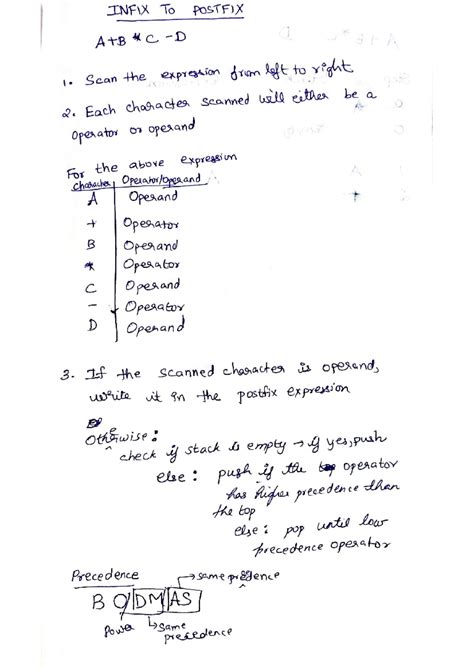 INFIX TO POSTFIX
A+B * C -D
1. Scan the expression from left to right
2. Each character scanned will either be a
operator or operand
For the above expression
Character Operator/operand
A Operand
+ Operator
B Operand
* Operator
C Operand
- Operator
D Operand
3. If the scanned character is operand,
write it in the postfix expression
Otherwise:
check if stack is empty → if yes, push
else: push if the operator
has higher precedence than
the top
else: pop until low
precedence operator
Precedence → same precedence
B O DM AS
Power ↳ same
precedence